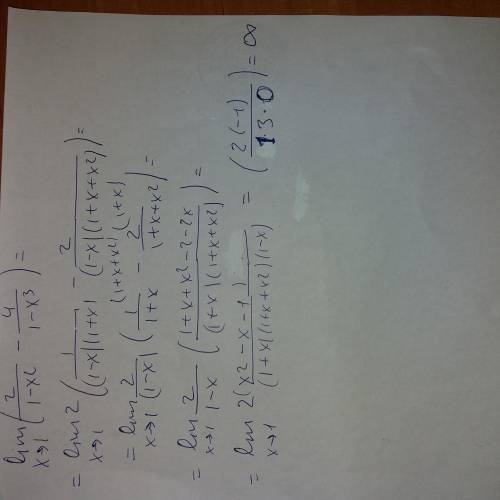 lim x→1 (2/(1-x²) - 4/(1-x³)) =
= lim x→1 2(1/((1-x)(1+x)) - 2/((1-x)(1+x+x²))) =
= lim x→1 2/(1-x) (1/(1+x) - 2/(1+x+x²)) = (1+x+x²) (1+x)
= lim x→1 2/(1-x) ((1+x+x²-2-2x)/((1+x)(1+x+x²))) =
= lim x→1 2(x²-x-1)/((1+x)(1+x+x²)(1-x)) = (2(-1)/(1·3·0)) = ∞